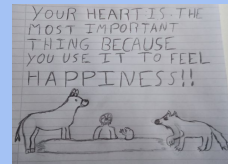 YOUR HEART IS THE
MOST IMPORTANT
THING BECAUSE
YOU USE IT TO FEEL
HAPPINESS!!